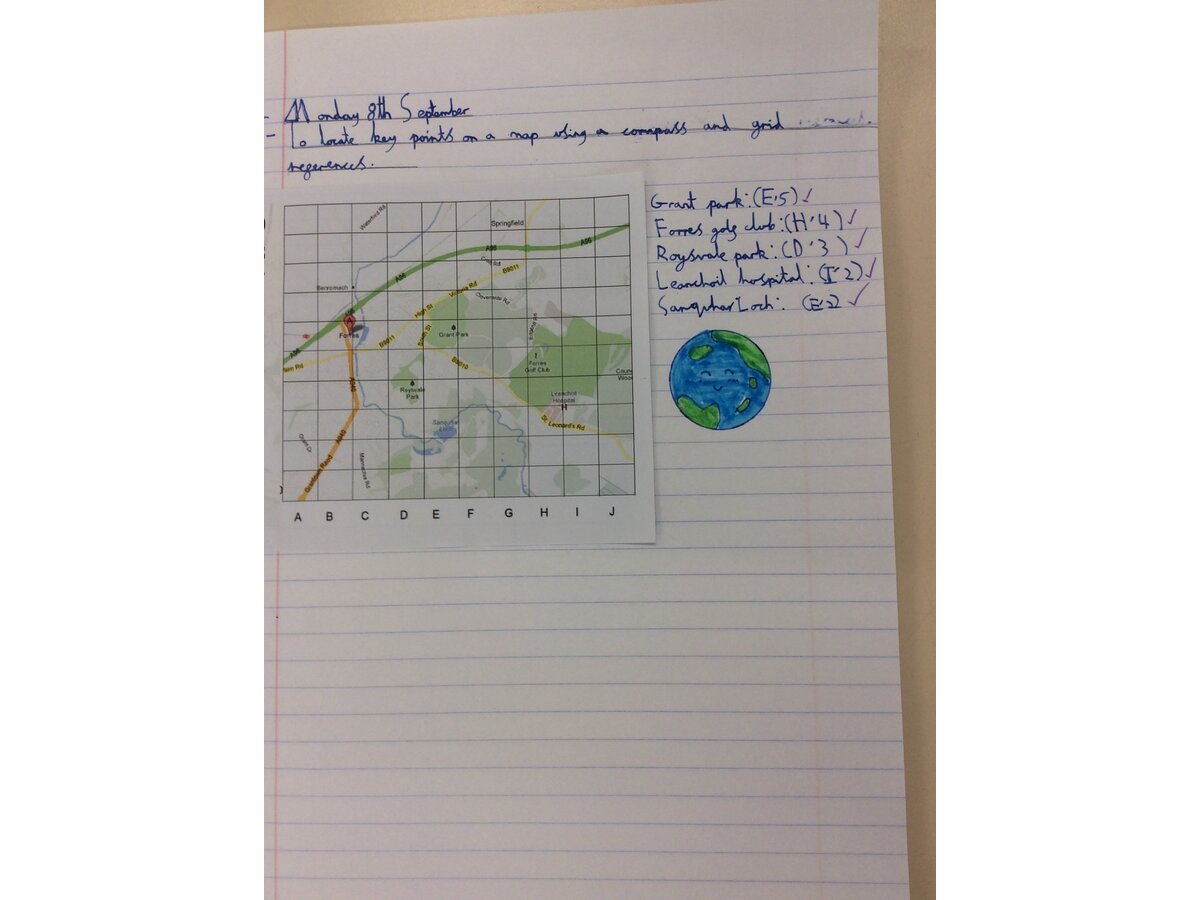 Monday 8th September
To locate key points on a map using a compass and grid
regerences.
Grant park: (E'5) ✓
Forres golg club: (H'4) ✓
Roysvale park: (D'3) ✓
Leanchoil hospital: (I'2) ✓
Sanquhar Loch: (E'2) ✓
Waterford Rd
Springfield
A96
A96
A96
Croft Rd
B9011
Benromach
Victoria Rd
Claverante Rd
High St
A
Forres
South St
Grant Park
B9011
B9010
Forres
Golf Club
A96
A940
Roysvale
Park
Leanchoil
Hospital
H
Sanquhar
Loch
St. Leonard's Rd
A940
Grantown Road
Mannachie Rd
A B C D E F G H I J